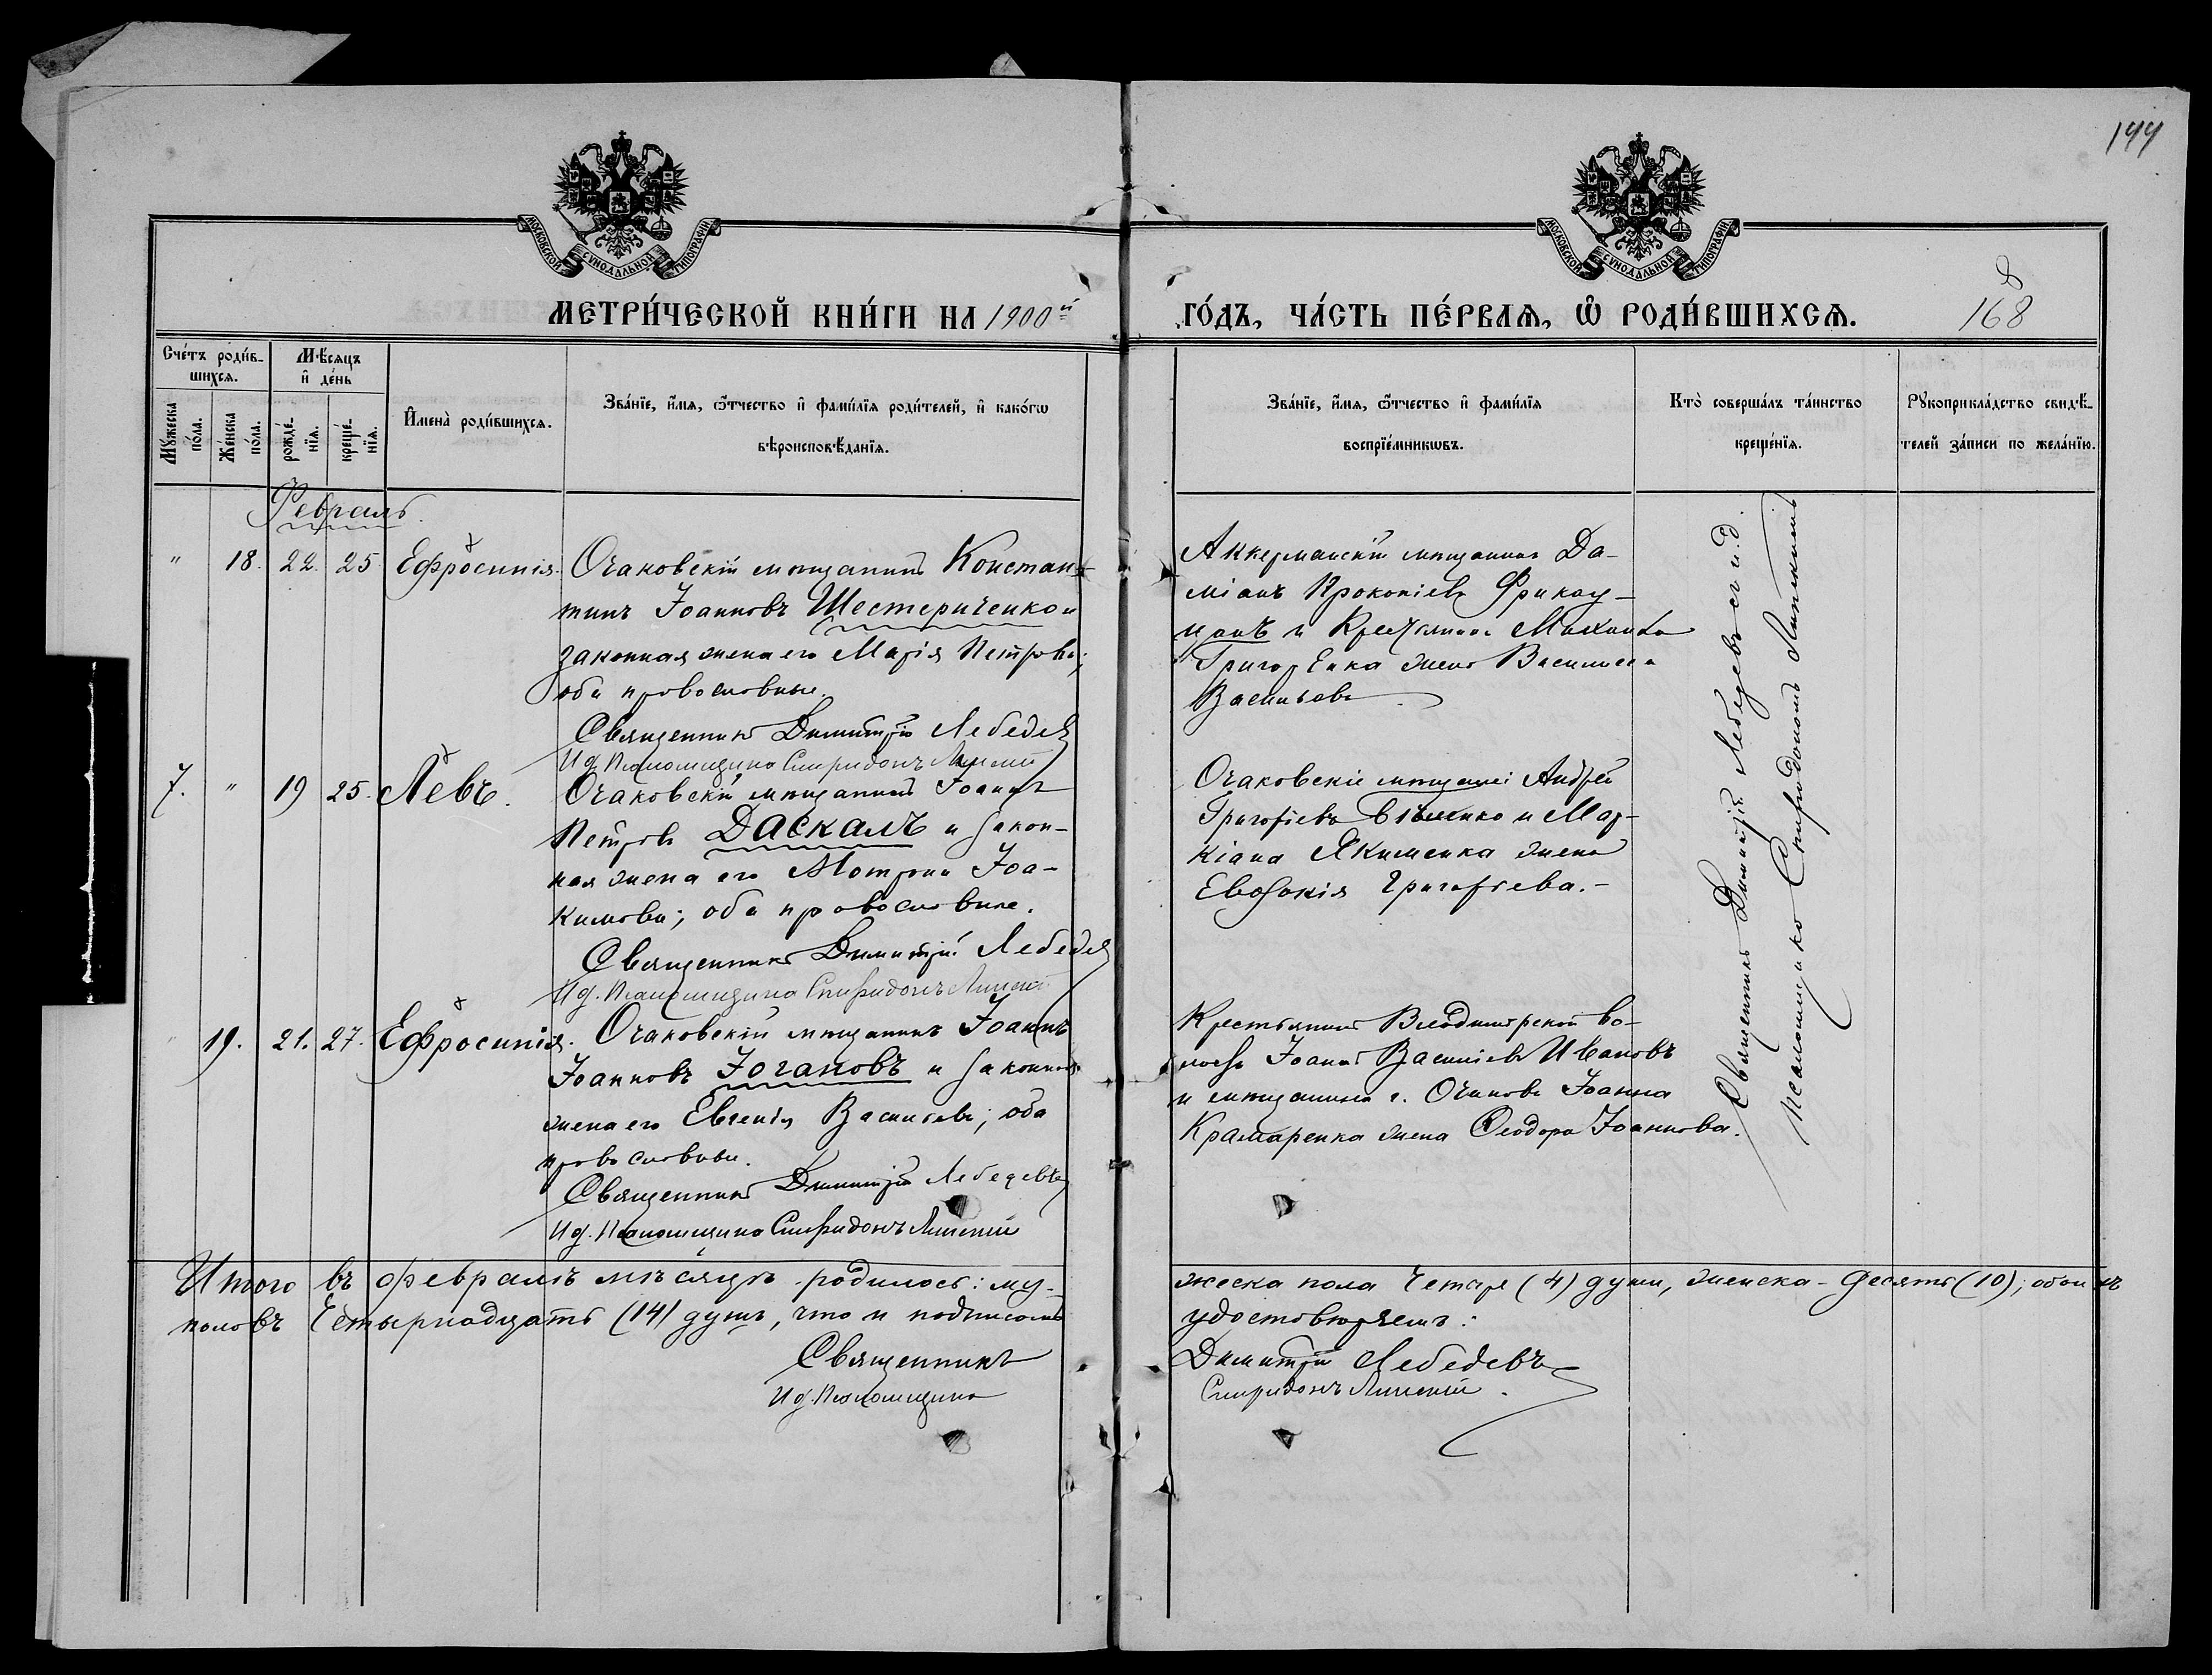 199
МОСКОВСКОЙ СѴНОДАЛЬНОЙ ТИПОГРАФІИ
МОСКОВСКОЙ СѴНОДАЛЬНОЙ ТИПОГРАФІИ
МЕТРИ́ЧЕСКОЙ КНИ́ГИ НА 1900й
ГО́ДЪ, ЧА́СТЬ ПЕ́РВАѦ, Ѡ РОДИ́ВШИХСѦ.
168
Сче́тъ роди́в-
шихсѧ.
Мѣ́сѧцъ
и҆ де́нь
Мꙋ́жеска
по́ла.
Же́нска
по́ла.
рожде́-
нїѧ.
креще́-
нїѧ.
И҆мена̀ роди́вшихсѧ.
Зва́нїе, и҆́мѧ, ѻ҆́тчество и҆ фами́лїѧ роди́телей, и҆ како́гѡ
вѣроисповѣ́данїѧ.
Зва́нїе, и҆́мѧ, ѻ҆́тчество и҆ фами́лїѧ
воспрїе́мникѡвъ.
Кто̀ соверша́лъ та́инство
креще́нїѧ.
Рꙋкоприкла́дство свидѣ́-
телей за́писи по жела́нїю.
Февраль.
" 18. 22. 25 Ефросинія. Очаковскій мѣщанинъ Констан-
тинъ Іоанновъ Шестериченко и
законная жена его Марія Петрова;
оба православные.
Священникъ Димитрій Лебедевъ
И д. Псаломщика Спиридонъ Липскій
Аккерманскій мѣщанинъ Да-
міанъ Прокопіевъ Фрикау-
цанъ и крестьянина
Григоренка жена Василисса
Васильева
7. " 19 25. Левъ. Очаковскій мѣщанинъ Іоаннъ
Петровъ Даскалъ и закон-
ная жена его Мотрона Іоа-
кимова; оба православные.
Священникъ Димитрій Лебедевъ
И д. Псаломщика Спиридонъ Липскій
Очаковскіе мѣщане: Андрей
Григоріевъ и Мар-
кіана Якименка жена
Евдокія Григорьева.-
" 19. 21. 27. Ефросинія. Очаковскій мѣщанинъ Іоаннъ
Іоанновъ Югановъ и законная
жена его Евгенія Васильева; оба
православные.
Священникъ Димитрій Лебедевъ
И д. Псаломщика Спиридонъ Липскій
Крестьянинъ Владимірской во-
лости Іоаннъ Василіевъ Ивановъ
и мѣщанина г. Очакова Іоанна
Крамаренка жена Ѳеодора Іоаннова.
Священникъ Димитрій Лебедевъ съ и. д.
псаломщика Спиридономъ Липскимъ
Итого въ февралѣ мѣсяцѣ родилось: му-
жеска пола четыре (4) души, женска - десять (10); обоихъ
половъ четырнадцать (14) душъ, что и подписомъ
удостовѣряемъ:
Священникъ Димитрій Лебедевъ
И д. Псаломщика Спиридонъ Липскій.